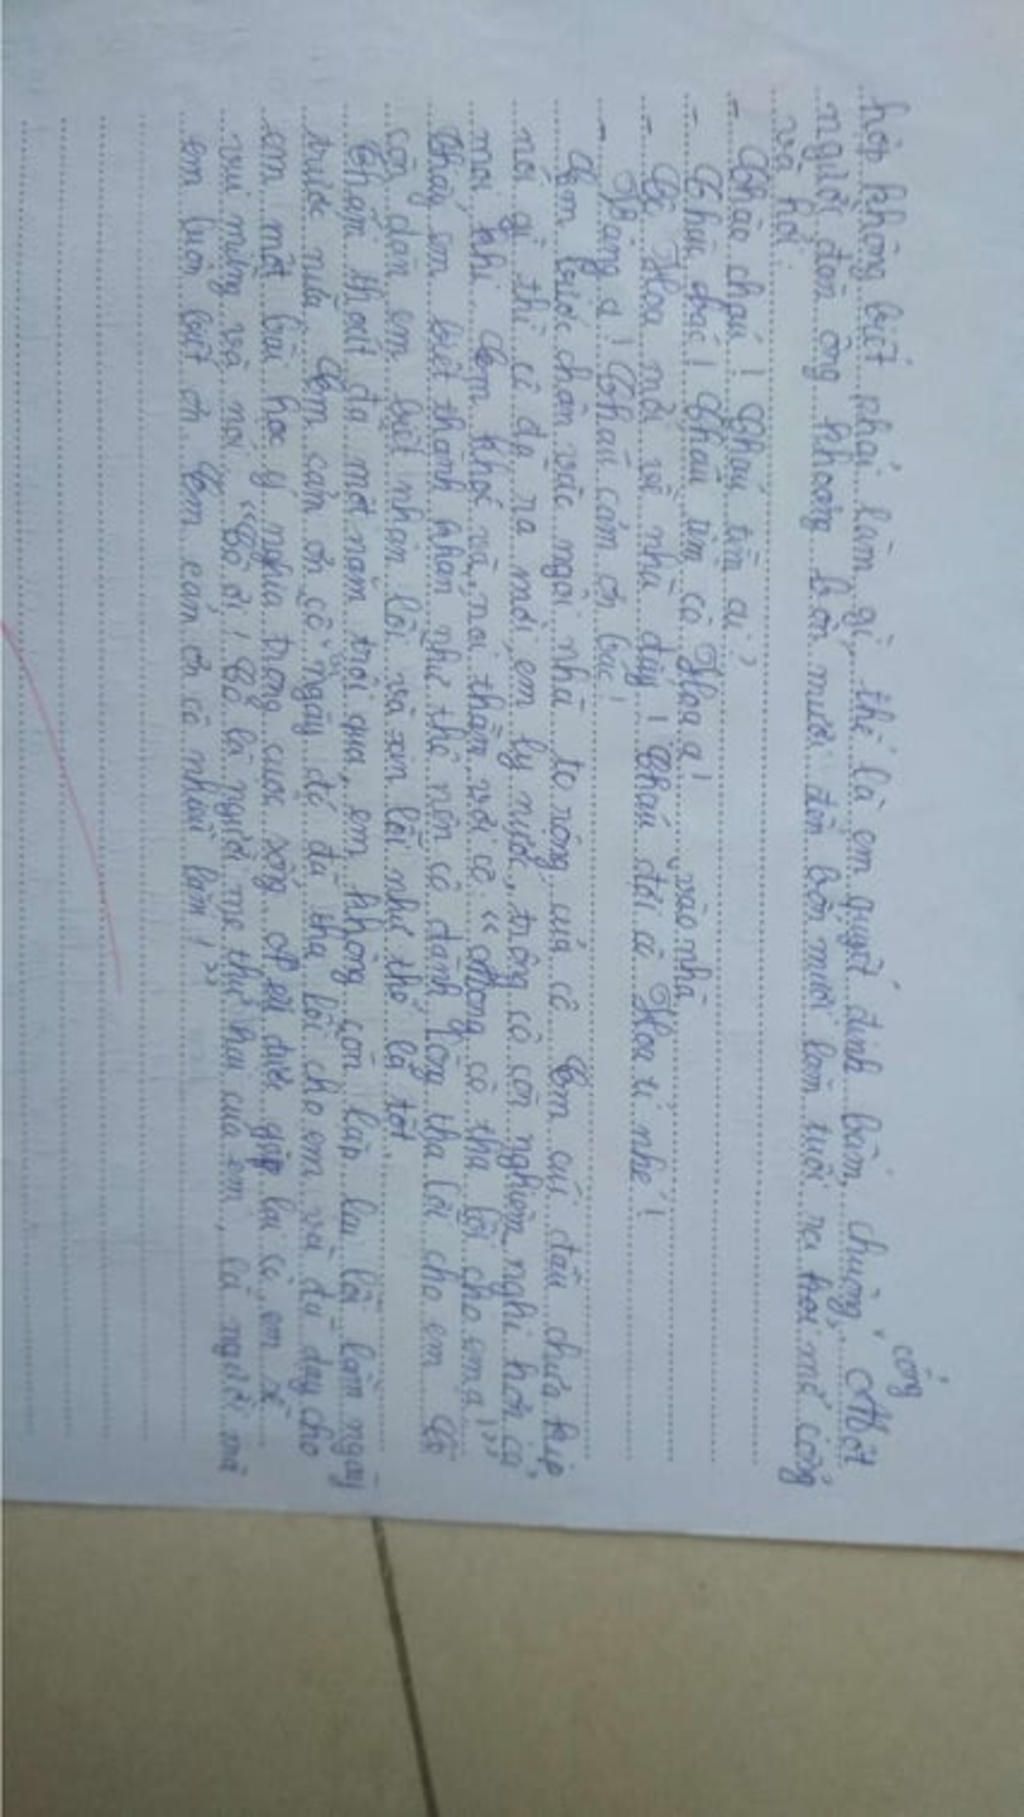 cổng
hộp không biết phải làm gì, thế là em quyết định bấm chuông. Một
người đàn ông khoảng bốn mươi đến bốn mươi lăm tuổi ra mở cổng
và hỏi:
- Chào cháu! Cháu tìm ai?
- Cháu bác! Cháu tìm cô Hoa ạ!
vào nhà
- Cô Hoa mới về nhà đấy! Cháu đợi cô Hoa tí nhé!
- Vâng ạ! Cháu cám ơn bác!
Em bước chân vào ngôi nhà to rộng của cô. Em cúi đầu chưa kịp
nói gì thì cô đã ra mời em ly nước, trông cô còn nghiêm nghị hơn cả
mọi khi. Em khóc và nói thầm với cô "Mong cô tha lỗi cho em ạ!"
Thấy em biết thành khẩn như thế nên cô đành lòng tha lỗi cho em. Cô
còn dặn em biết nhận lỗi và xin lỗi như thế là tốt.
Thấm thoát đã một năm trôi qua, em không còn lặp lại lỗi lầm ngày
trước nữa. Em cảm ơn cô ngày đó đã tha lỗi cho em và đã dạy cho
em một bài học ý nghĩa trong cuộc sống. được gặp lại cô, em sẽ
vui mừng và nói: "Cô ơi! Cô là người mẹ thứ hai của em, là người mà
em luôn biết ơn. Em cảm ơn cô nhiều lắm!"